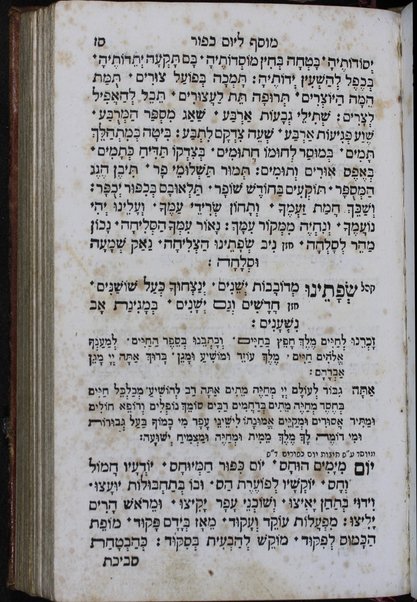 מוסף ליום כפור סז
יְסוֹדוֹתֶיהָ׃ בָּטְחָה בְּחִין מוֹסְדוֹתֶיהָ׃ בָּם תָּקְעָה יְתֵדוֹתֶיהָ׃
לְהַשְׁעִין יְדוֹתֶיהָ׃ תָּמְכָה בְּפוֹעַל צוּרִים׃ תַּמַּת
הֵמָּה הַיּוֹצְרִים׃ תְּרוּפָה תֵּת לַעֲצוּרִים׃ תֵּבֵל לְהַאֲפִיל
לְצָרִים׃ שְׁתִילֵי גְבָעוֹת אַרְבַּע׃ שְׁאַג מִסְפַּר הַמְרֻבָּע׃
שְׁוַע כְּנִיעוֹת אַרְבַּע׃ שְׁעֵה צִדְקָם לְתָבַע׃ בִּיטָה כְּמִתְהַלֵּךְ
תָּמִים׃ בְּמוּסַר לְחוּמוֹ חֲתוּמִים׃ בְּצִדְקוֹ תַּדִּיחַ כְּתָמִים׃
בְּאֶפֶס אוּרִים וְתוּמִים׃ תְּמוּר תַּשְׁלוּמֵי פָר׃ תִּיכֵּן הֶגֶג
הַמְסֻפָּר׃ תּוֹקְעִים בַּחוֹדֶשׁ שׁוֹפָר׃ תַּלְאוּבָם בְּכִפּוּר יְכֻפַּר׃
וְשִׁכַּךְ חֲמַת זַעֲמֶךָ׃ וְתָחוֹן שְׂרִידֵי עַמֶּךָ׃ וְעָלֵינוּ יְהִי
נוֹעֲמֶךָ׃ וְנִחְיֶה מִמְּקוֹר עִמֶּךָ׃ נְאוֹר עִמְּךָ הַסְּלִיחָה׃ נָכוֹן
מַהֵר לְסָלְחָה׃ חזן נִיב שְׂפָתֵינוּ הַצְלִיחָה׃ נַאַק שְׁמָעָה
וּסְלָחָה׃
קהל שְׂפָתֵינוּ מְדוֹבְבוֹת יְשֵׁנִים׃ יְנַצְּחוּךָ כְּעַל שׁוֹשַׁנִּים׃
חזן חֲדָשִׁים וְגַם יְשָׁנִים׃ בְּמָגִינַּת אָב
נִשְׁעָנִים׃
זָכְרֵנוּ לְחַיִּים מֶלֶךְ חָפֵץ בַּחַיִּים׃ וְכָתְבֵנוּ בְּסֵפֶר הַחַיִּים׃ לְמַעַנְךָ
אֱלֹהִים חַיִּים׃ מֶלֶךְ עוֹזֵר וּמוֹשִׁיעַ וּמָגֵן׃ בָּרוּךְ אַתָּה יְיָ מָגֵן
אַבְרָהָם׃
אַתָּה גִּבּוֹר לְעוֹלָם יְיָ מְחַיֵּה מֵתִים אַתָּה רַב לְהוֹשִׁיעַ׃ מְכַלְכֵּל חַיִּים
בְּחֶסֶד מְחַיֵּה מֵתִים בְּרַחֲמִים רַבִּים סוֹמֵךְ נוֹפְלִים וְרוֹפֵא חוֹלִים
וּמַתִּיר אֲסוּרִים וּמְקַיֵּים אֱמוּנָתוֹ לִישֵׁינֵי עָפָר מִי כָמוֹךָ בַּעַל גְּבוּרוֹת
וּמִי דוֹמֶה לָּךְ מֶלֶךְ מֵמִית וּמְחַיֶּה וּמַצְמִיחַ יְשׁוּעָה׃
יוֹם מִיָּמִים הוּחָס׃ יוֹם כִּפּוּר הַמְיוּחָס׃ יוֹדְעָיו חֲמוֹל
וְחָס׃ יוֹקְשָׁיו לְפוֹעֶרֶת הָס׃ וּבוֹ בְּתַחְבּוּלוֹת יוּעָצוּ׃
וִידּוּי בְּתַחַן יָאִיצוּ׃ וְשׁוֹכְנֵי עָפָר יָקִיצוּ׃ וּמֵרֹאשׁ הָרִים
יָלִיצוּ׃ מִפְעֲלוֹת עוֹקֵד וְעָקוּד׃ מֵאָז בְּיָדָם פָּקוּד׃ מוֹפֵת
הַכָּמוּס לְפִקּוּד׃ מוֹקֵשׁ לְהַבְעִית בְּסִקּוּד׃ כְּהַבְטָחַת
סביכת